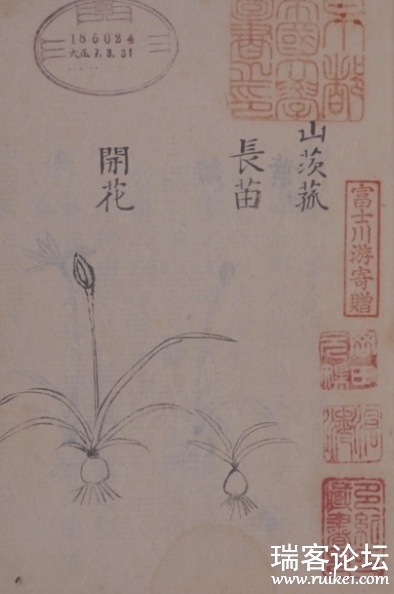 山茨菰
長苗
開花
大正7.3.31
京都
帝國大學
圖書之印
富士川游寄贈
瑞客论坛
www.ruikei.com